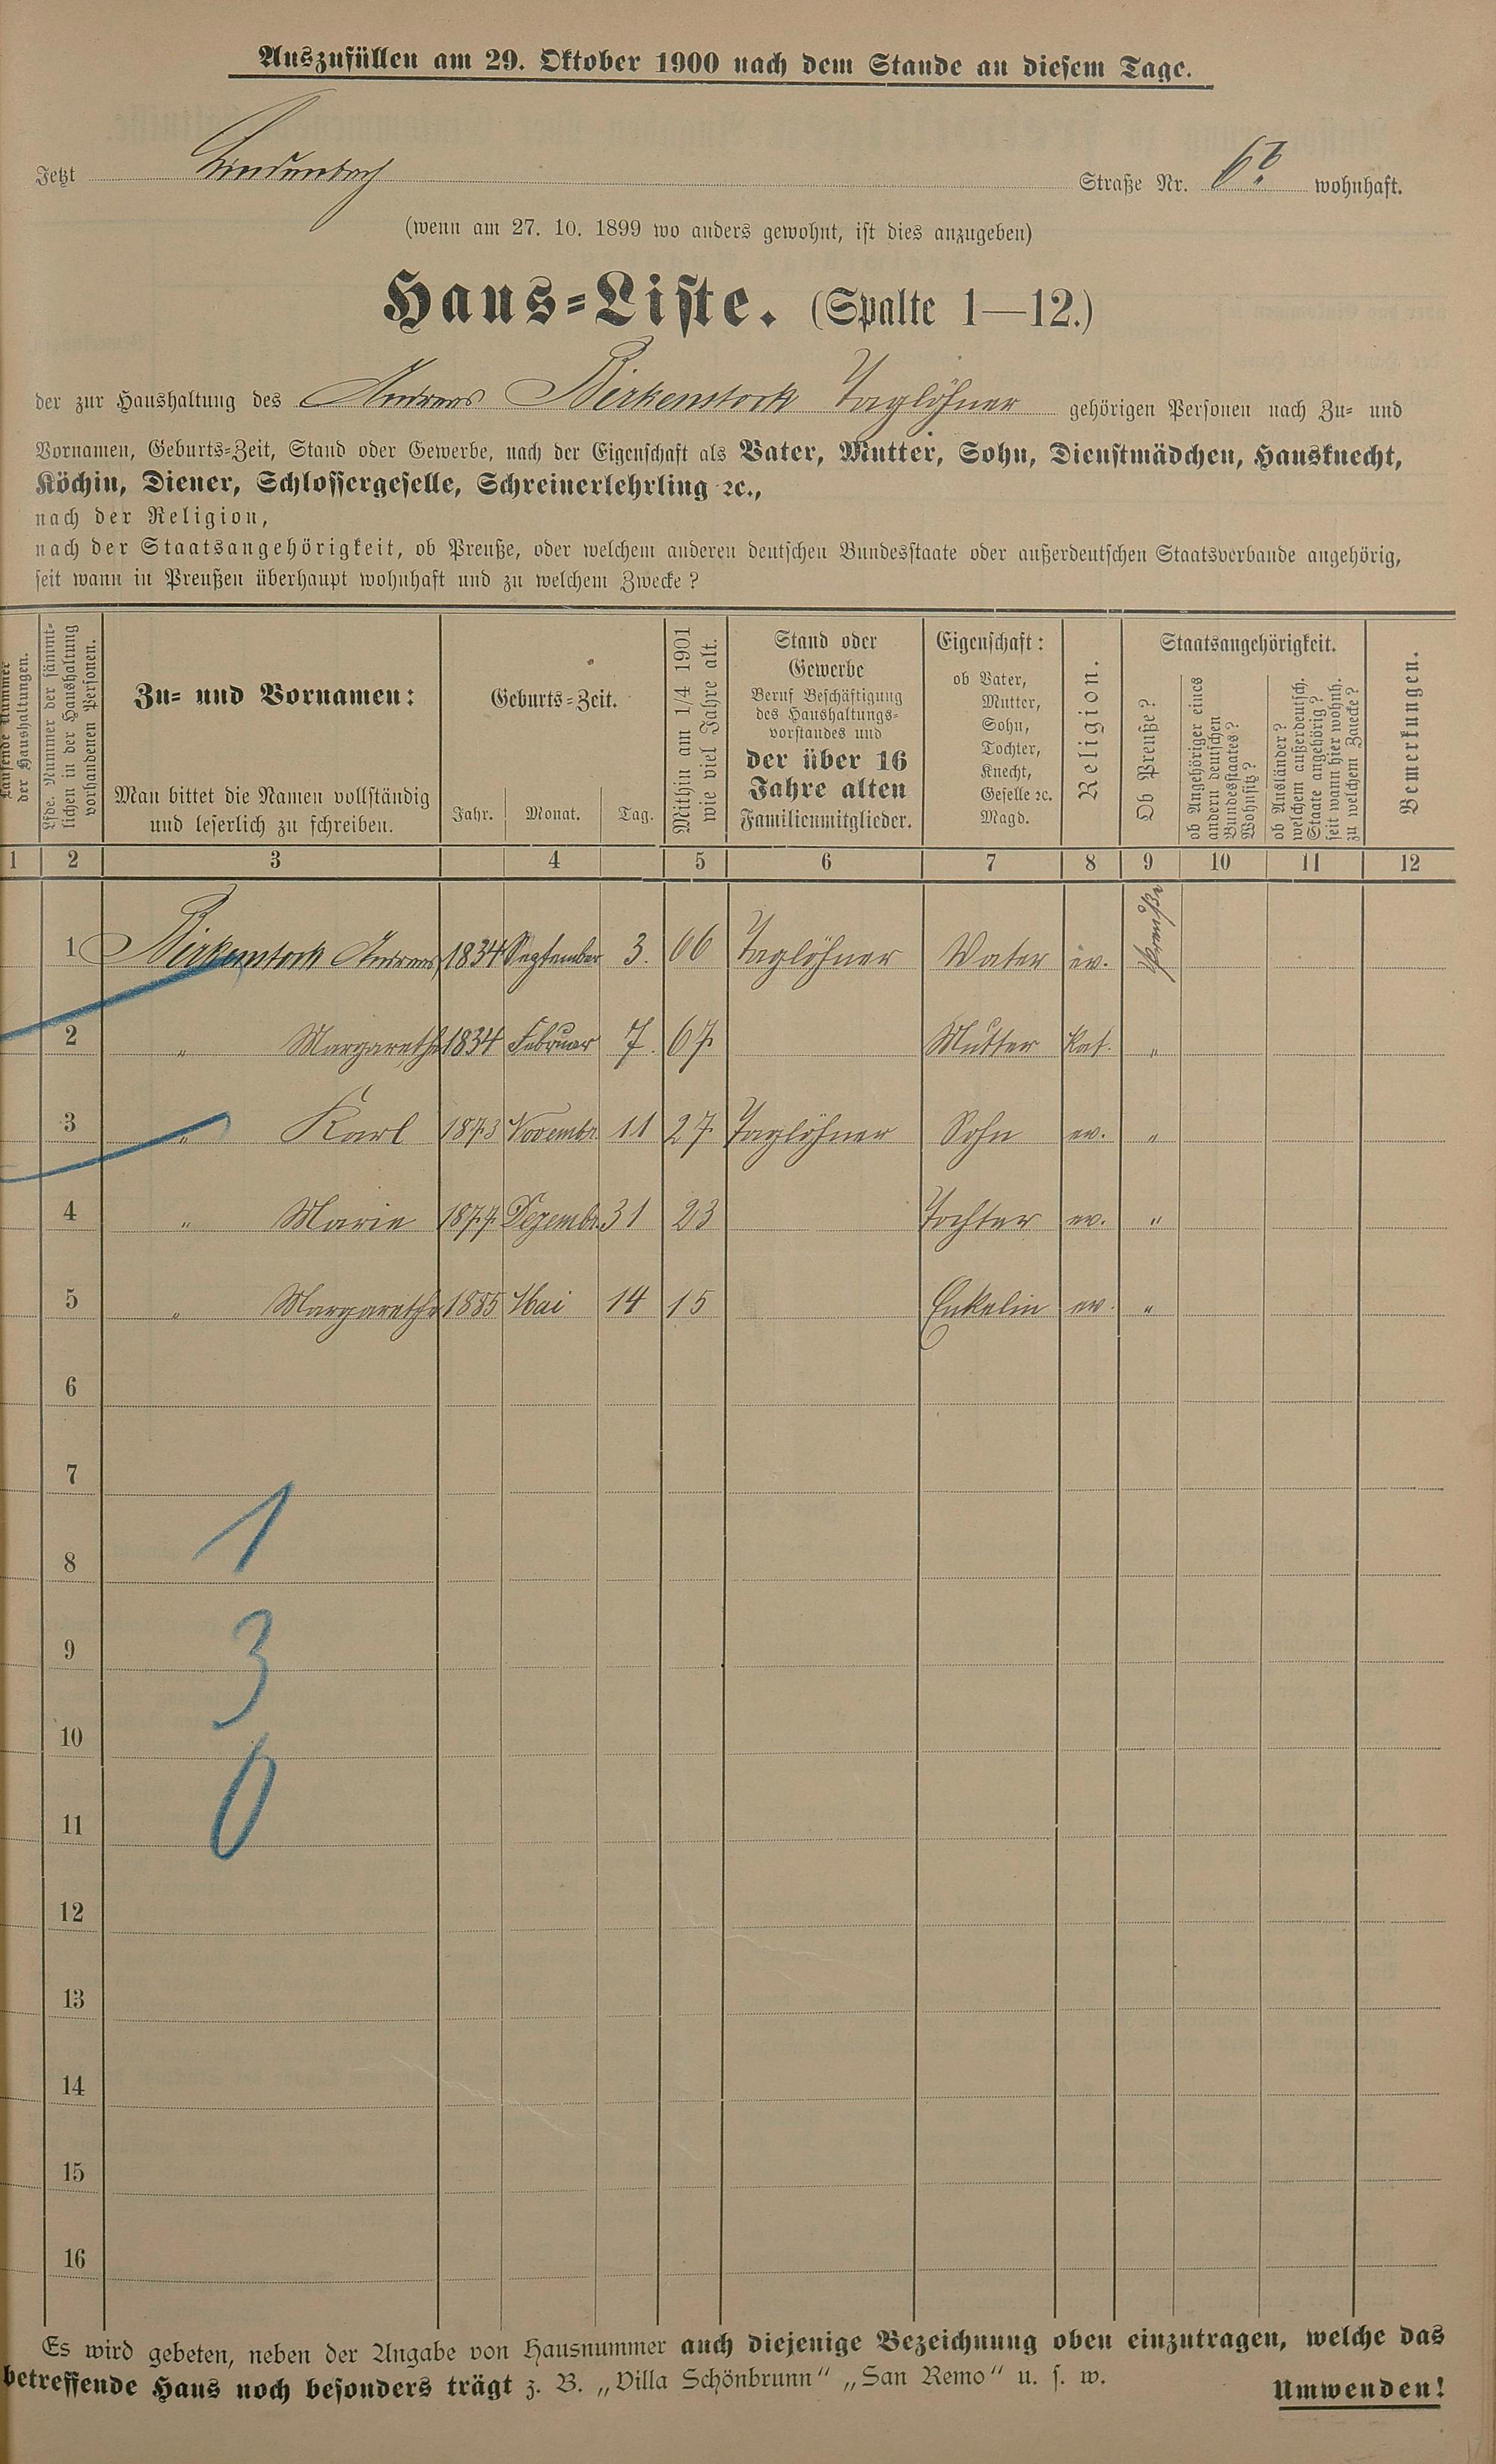 Auszufüllen am 29. Oktober 1900 nach dem Stande an diesem Tage.
Jetzt Lindenbach Straße Nr. 6b wohnhaft.
(wenn am 27. 10. 1899 wo anders gewohnt, ist dies anzugeben)
Haus-Liste. (Spalte 1—12.)
der zur Haushaltung des Andreas Birkenstock Taglöhner gehörigen Personen nach Zu- und
Vornamen, Geburts-Zeit, Stand oder Gewerbe, nach der Eigenschaft als Vater, Mutter, Sohn, Dienstmädchen, Hausknecht,
Köchin, Diener, Schlossergeselle, Schreinerlehrling ꝛc.,
nach der Religion,
nach der Staatsangehörigkeit, ob Preuße, oder welchem anderen deutschen Bundesstaate oder außerdeutschen Staatsverbande angehörig,
seit wann in Preußen überhaupt wohnhaft und zu welchem Zwecke?
Laufende Nummer
der Haushaltungen.
Lfde. Nummer der sämmt-
lichen in der Haushaltung
vorhandenen Personen.
Zu- und Vornamen:
Man bittet die Namen vollständig
und leserlich zu schreiben.
Geburts-Zeit.
Jahr. Monat. Tag.
Mithin am 1/4 1901
wie viel Jahre alt.
Stand oder
Gewerbe
Beruf Beschäftigung
des Haushaltungs-
vorstandes und
der über 16
Jahre alten
Familienmitglieder.
Eigenschaft:
ob Vater,
Mutter,
Sohn,
Tochter,
Knecht,
Geselle ꝛc.
Magd.
Religion.
Staatsangehörigkeit.
Ob Preuße?
ob Angehöriger eines
andern deutschen
Bundesstaates?
Wohnsitz?
ob Ausländer?
welchem außerdeutsch.
Staate angehörig?
seit wann hier wohnh.
zu welchem Zwecke?
Bemerkungen.
1 2 3 4 5 6 7 8 9 10 11 12
1 Birkenstock Andreas 1834 September 3. 66 Taglöhner Vater ev. Preuße
2 " Margarethe 1834 Februar 7. 67 Mutter Kat. "
3 " Karl 1873 Novembr. 11 27 Taglöhner Sohn ev. "
4 " Marie 1877 Dezembr. 31 23 Tochter ev. "
5 " Margarethe 1885 Mai 14 15 Enkelin ev. "
6
7
1
8
9
3
10
0
11
12
13
14
15
16
Es wird gebeten, neben der Angabe von Hausnummer auch diejenige Bezeichnung oben einzutragen, welche das
betreffende Haus noch besonders trägt z. B. „Villa Schönbrunn" „San Remo" u. s. w.
Umwenden!